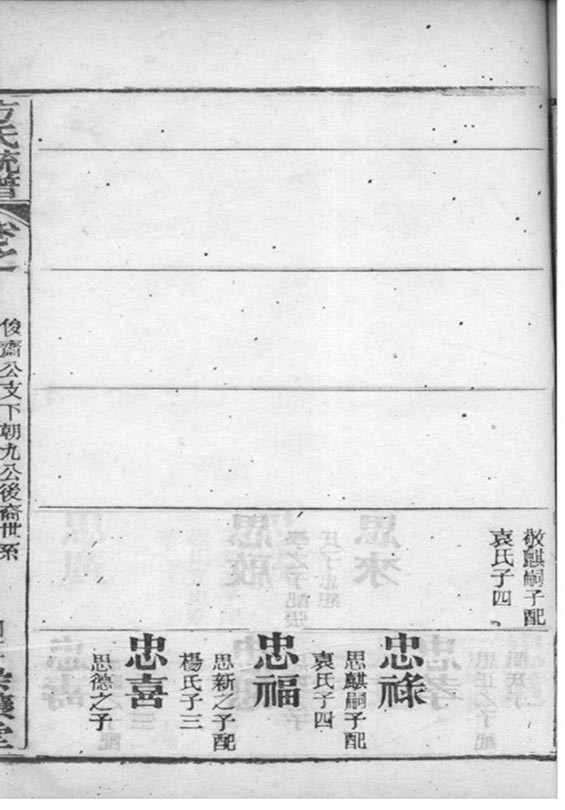 敬麒嗣子配
袁氏子四
忠祿
思麒嗣子配
袁氏子四
忠福
思新之子配
楊氏子三
忠喜
思德之子
方氏統譜
卷之一
俊齋公支下朝九公後裔世系